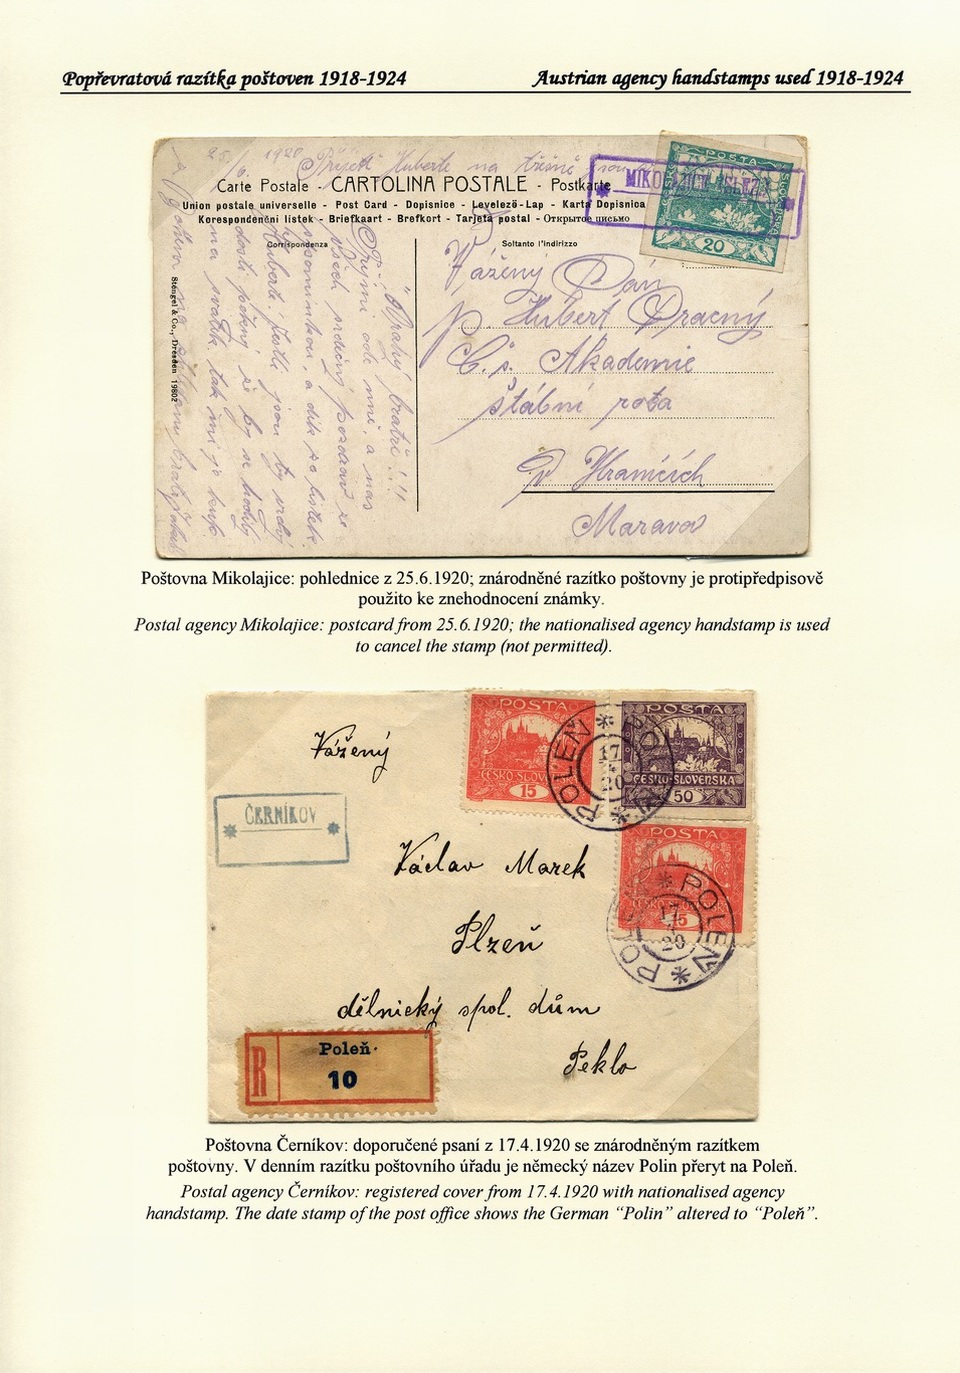 Popřevratová razítka poštoven 1918-1924
Austrian agency handstamps used 1918-1924
25./6. 1920
Carte Postale - CARTOLINA POSTALE - Postkarte
Union postale universelle - Post Card - Dopisnice - Levelezö-Lap - Karta Dopisnica
Korespondenční lístek - Briefkaart - Brefkort - Tarjeta postal - Открытое письмо
POSTA
20
Corrispondenza
Soltanto l'indirizzo
Stengel & Co., Dresden 19802
Drahý bratře!!!
Přijmi ode mně, a nas
všech srdečný pozdrav
Vážený Pán
p. Hubert Dracný
Č. s. Akademie
štábní rota
v Hranicích
Marava
Poštovna Mikolajice: pohlednice z 25.6.1920; znárodněné razítko poštovny je protipředpisově
použito ke znehodnocení známky.
Postal agency Mikolajice: postcard from 25.6.1920; the nationalised agency handstamp is used
to cancel the stamp (not permitted).
POSTA
ČESKO-SLOVENSKA
15
POSTA
ČESKO-SLOVENSKA
50
POLEŇ * POLEŇ *
17
4
20
Vážený
ČERNÍKOV
POSTA
15
* POLEŇ * POLEŇ
17
20
Václav Marek
Plzeň
dělnický spol. dům
Peklo
R
Poleň
10
Poštovna Černíkov: doporučené psaní z 17.4.1920 se znárodněným razítkem
poštovny. V denním razítku poštovního úřadu je německý název Polin přeryt na Poleň.
Postal agency Černíkov: registered cover from 17.4.1920 with nationalised agency
handstamp. The date stamp of the post office shows the German “Polin” altered to “Poleň”.